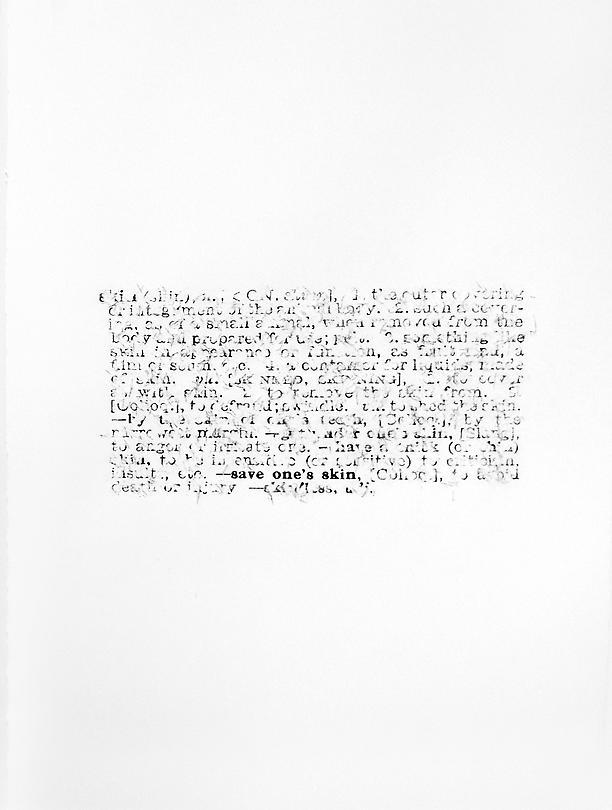 skin (skin), n., [< O.N. skinn], 1. the outer covering
or integument of the animal body. 2. such a cover-
ing, as of a small animal, when removed from the
body and prepared for use; pelt. 3. something like
skin in appearance or function, as fruit rind, a
film or scum, etc. 4. a container for liquids, made
of skin. v.t. [SKINNED, SKINNING], 1. to cover
as with skin. 2. to remove the skin from. 3.
[Colloq.], to defraud; swindle. v.i. to shed the skin.
—by the skin of one's teeth, [Colloq.], by the
narrowest margin. —get under one's skin, [Slang],
to anger or irritate one. —have a thick (or thin)
skin, to be insensitive (or sensitive) to criticism,
insult, etc. —save one's skin, [Colloq.], to avoid
death or injury —skin'less, adj.